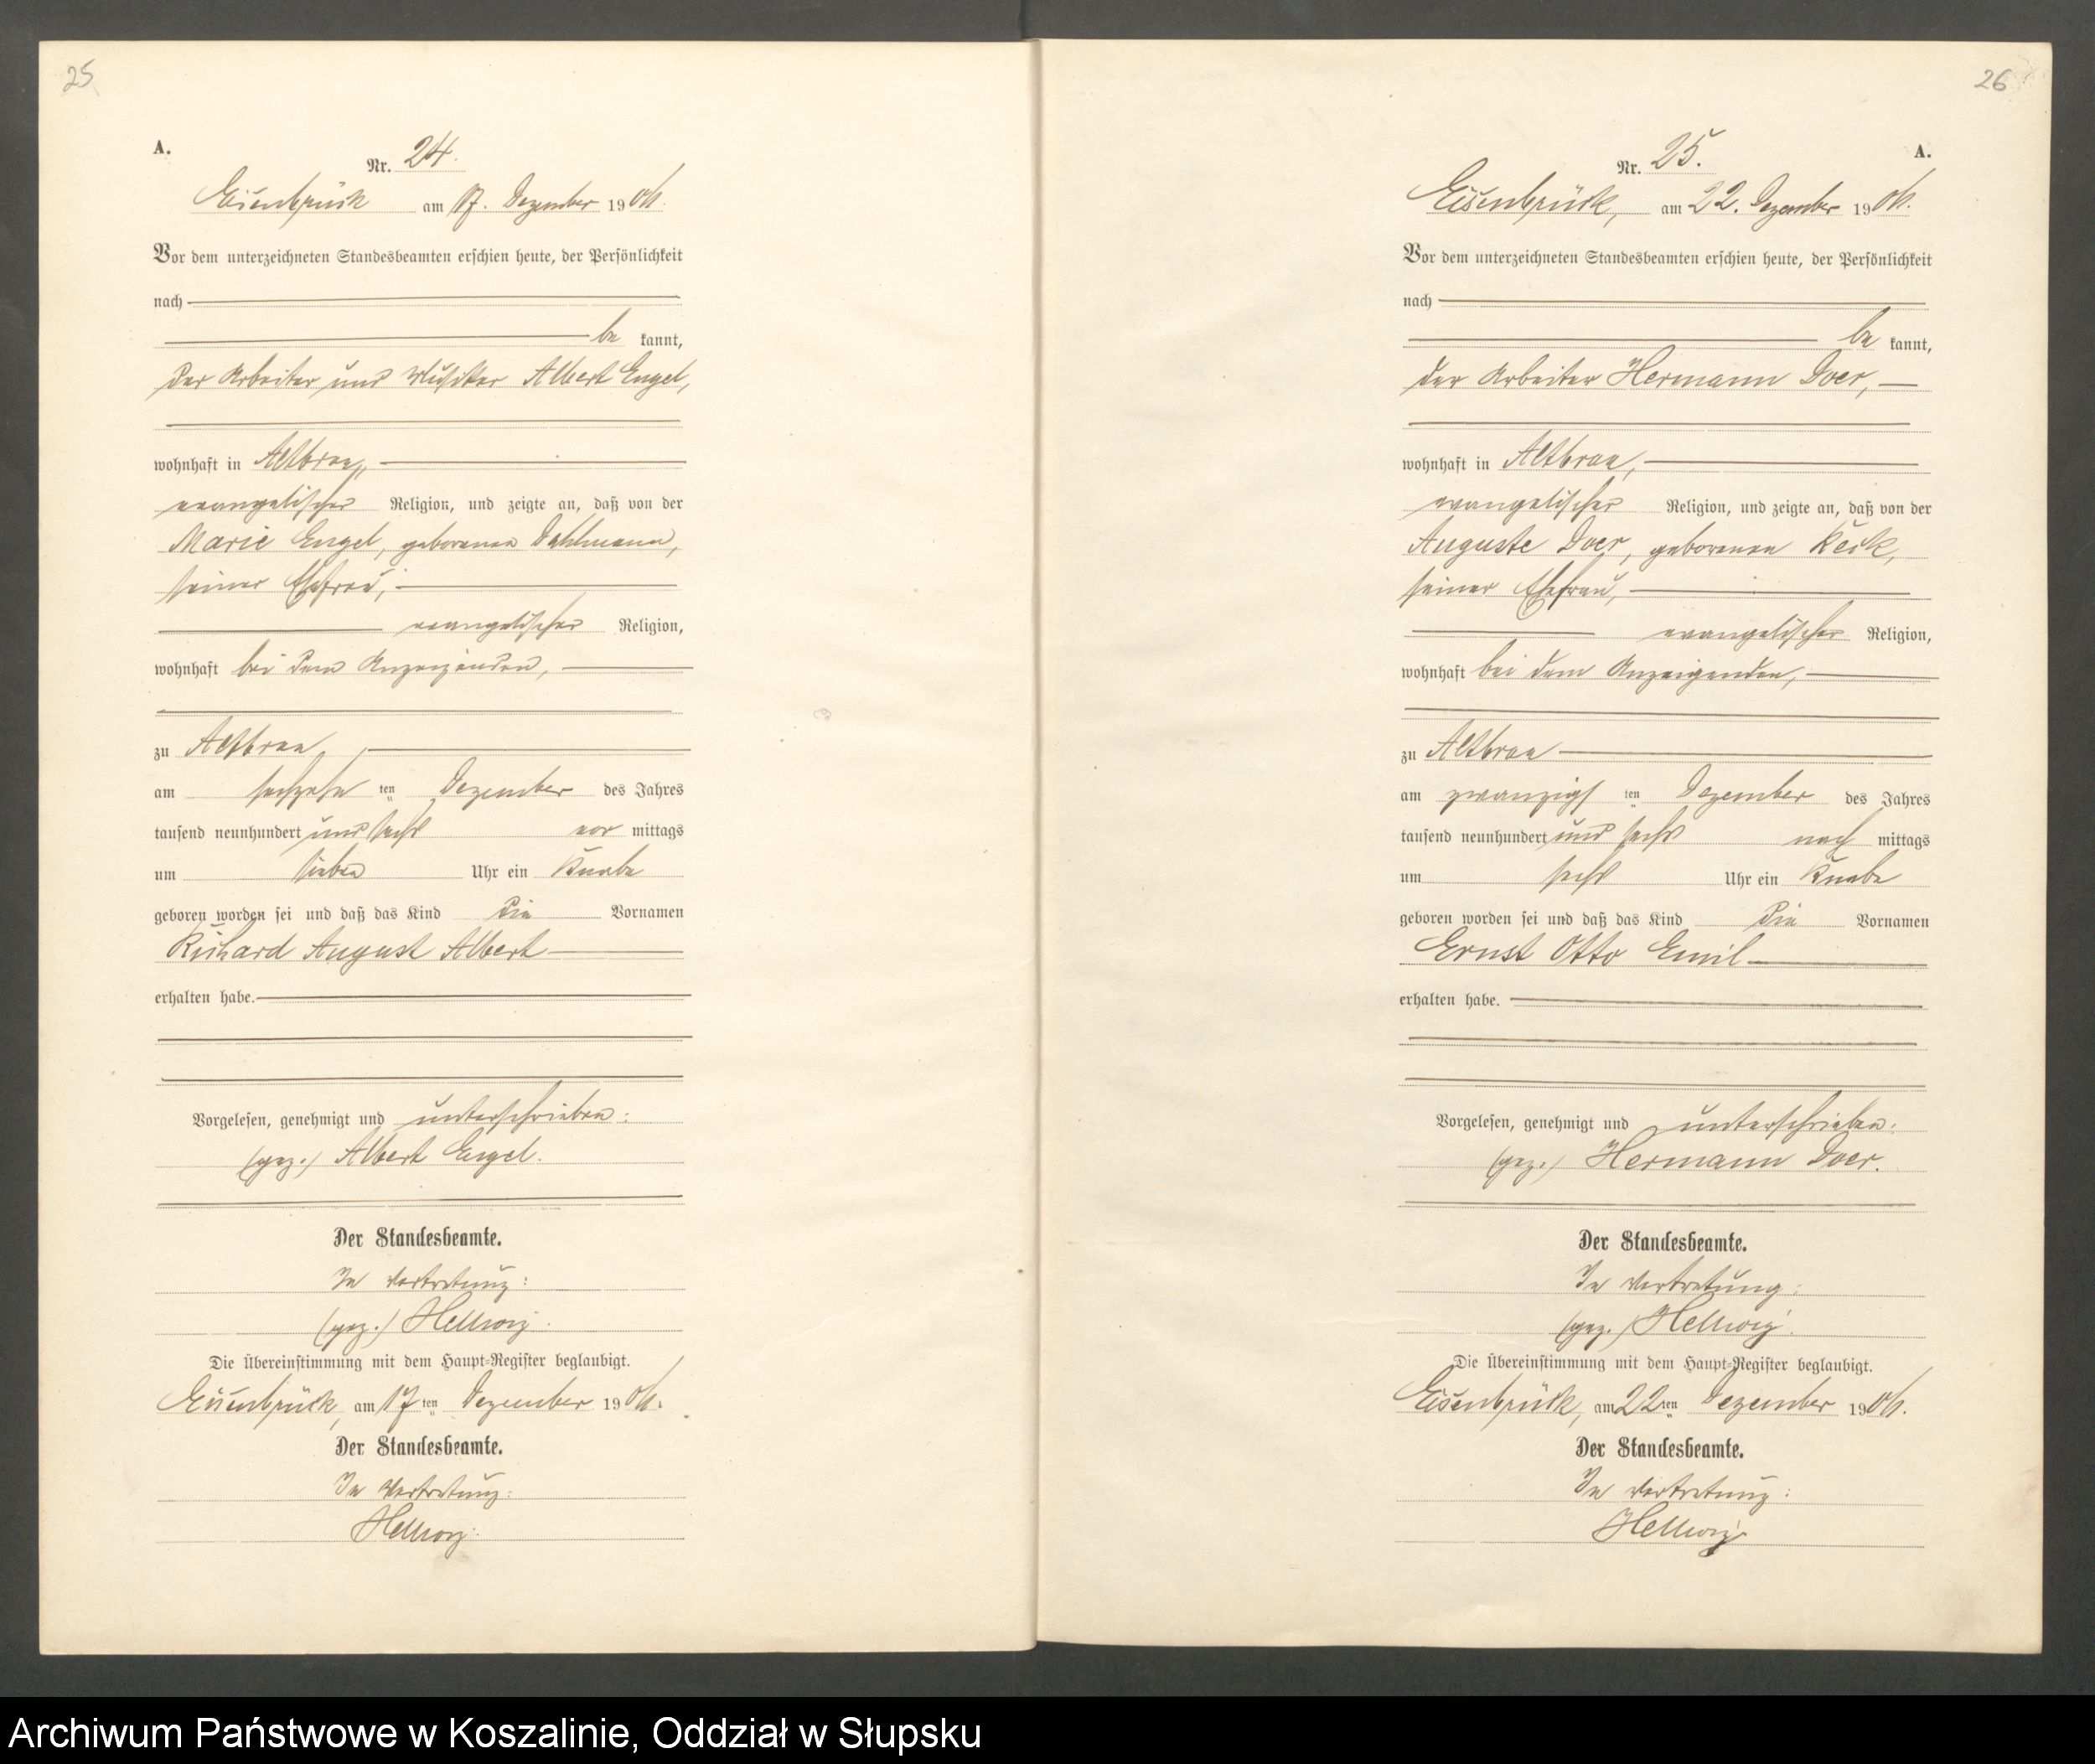 25
A.
Nr. 24.
Eisenbrück am 17. Dezember 1906.
Vor dem unterzeichneten Standesbeamten erschien heute, der Persönlichkeit
nach
be kannt,
der Arbeiter und Musiker Albert Engel,
wohnhaft in Altbraa,
evangelischer Religion, und zeigte an, daß von der
Marie Engel, geborenen Dahlmann,
seiner Ehefrau,
evangelischer Religion,
wohnhaft bei dem Anzeigenden,
zu Altbraa,
am sechzehn ten Dezember des Jahres
tausend neunhundert und sechs vor mittags
um sieben Uhr ein Knabe
geboren worden sei und daß das Kind die Vornamen
Richard August Albert
erhalten habe.
Vorgelesen, genehmigt und unterschrieben:
(gez.) Albert Engel.
Der Standesbeamte.
In Vertretung:
(gez.) Hellwig.
Die Übereinstimmung mit dem Haupt-Register beglaubigt.
Eisenbrück, am 17 ten Dezember 1906.
Der Standesbeamte.
In Vertretung:
Hellwig.
26
A.
Nr. 25.
Eisenbrück, am 22. Dezember 1906.
Vor dem unterzeichneten Standesbeamten erschien heute, der Persönlichkeit
nach
be kannt,
der Arbeiter Hermann Doer,
wohnhaft in Altbraa,
evangelischer Religion, und zeigte an, daß von der
Auguste Doer, geborenen Keck,
seiner Ehefrau,
evangelischer Religion,
wohnhaft bei dem Anzeigenden,
zu Altbraa
am zwanzigs ten Dezember des Jahres
tausend neunhundert und sechs nach mittags
um sechs Uhr ein Knabe
geboren worden sei und daß das Kind die Vornamen
Ernst Otto Emil
erhalten habe.
Vorgelesen, genehmigt und unterschrieben:
(gez.) Hermann Doer.
Der Standesbeamte.
In Vertretung:
(gez.) Hellwig.
Die Übereinstimmung mit dem Haupt-Register beglaubigt.
Eisenbrück, am 22 ten Dezember 1906.
Der Standesbeamte.
In Vertretung:
Hellwig
Archiwum Państwowe w Koszalinie, Oddział w Słupsku